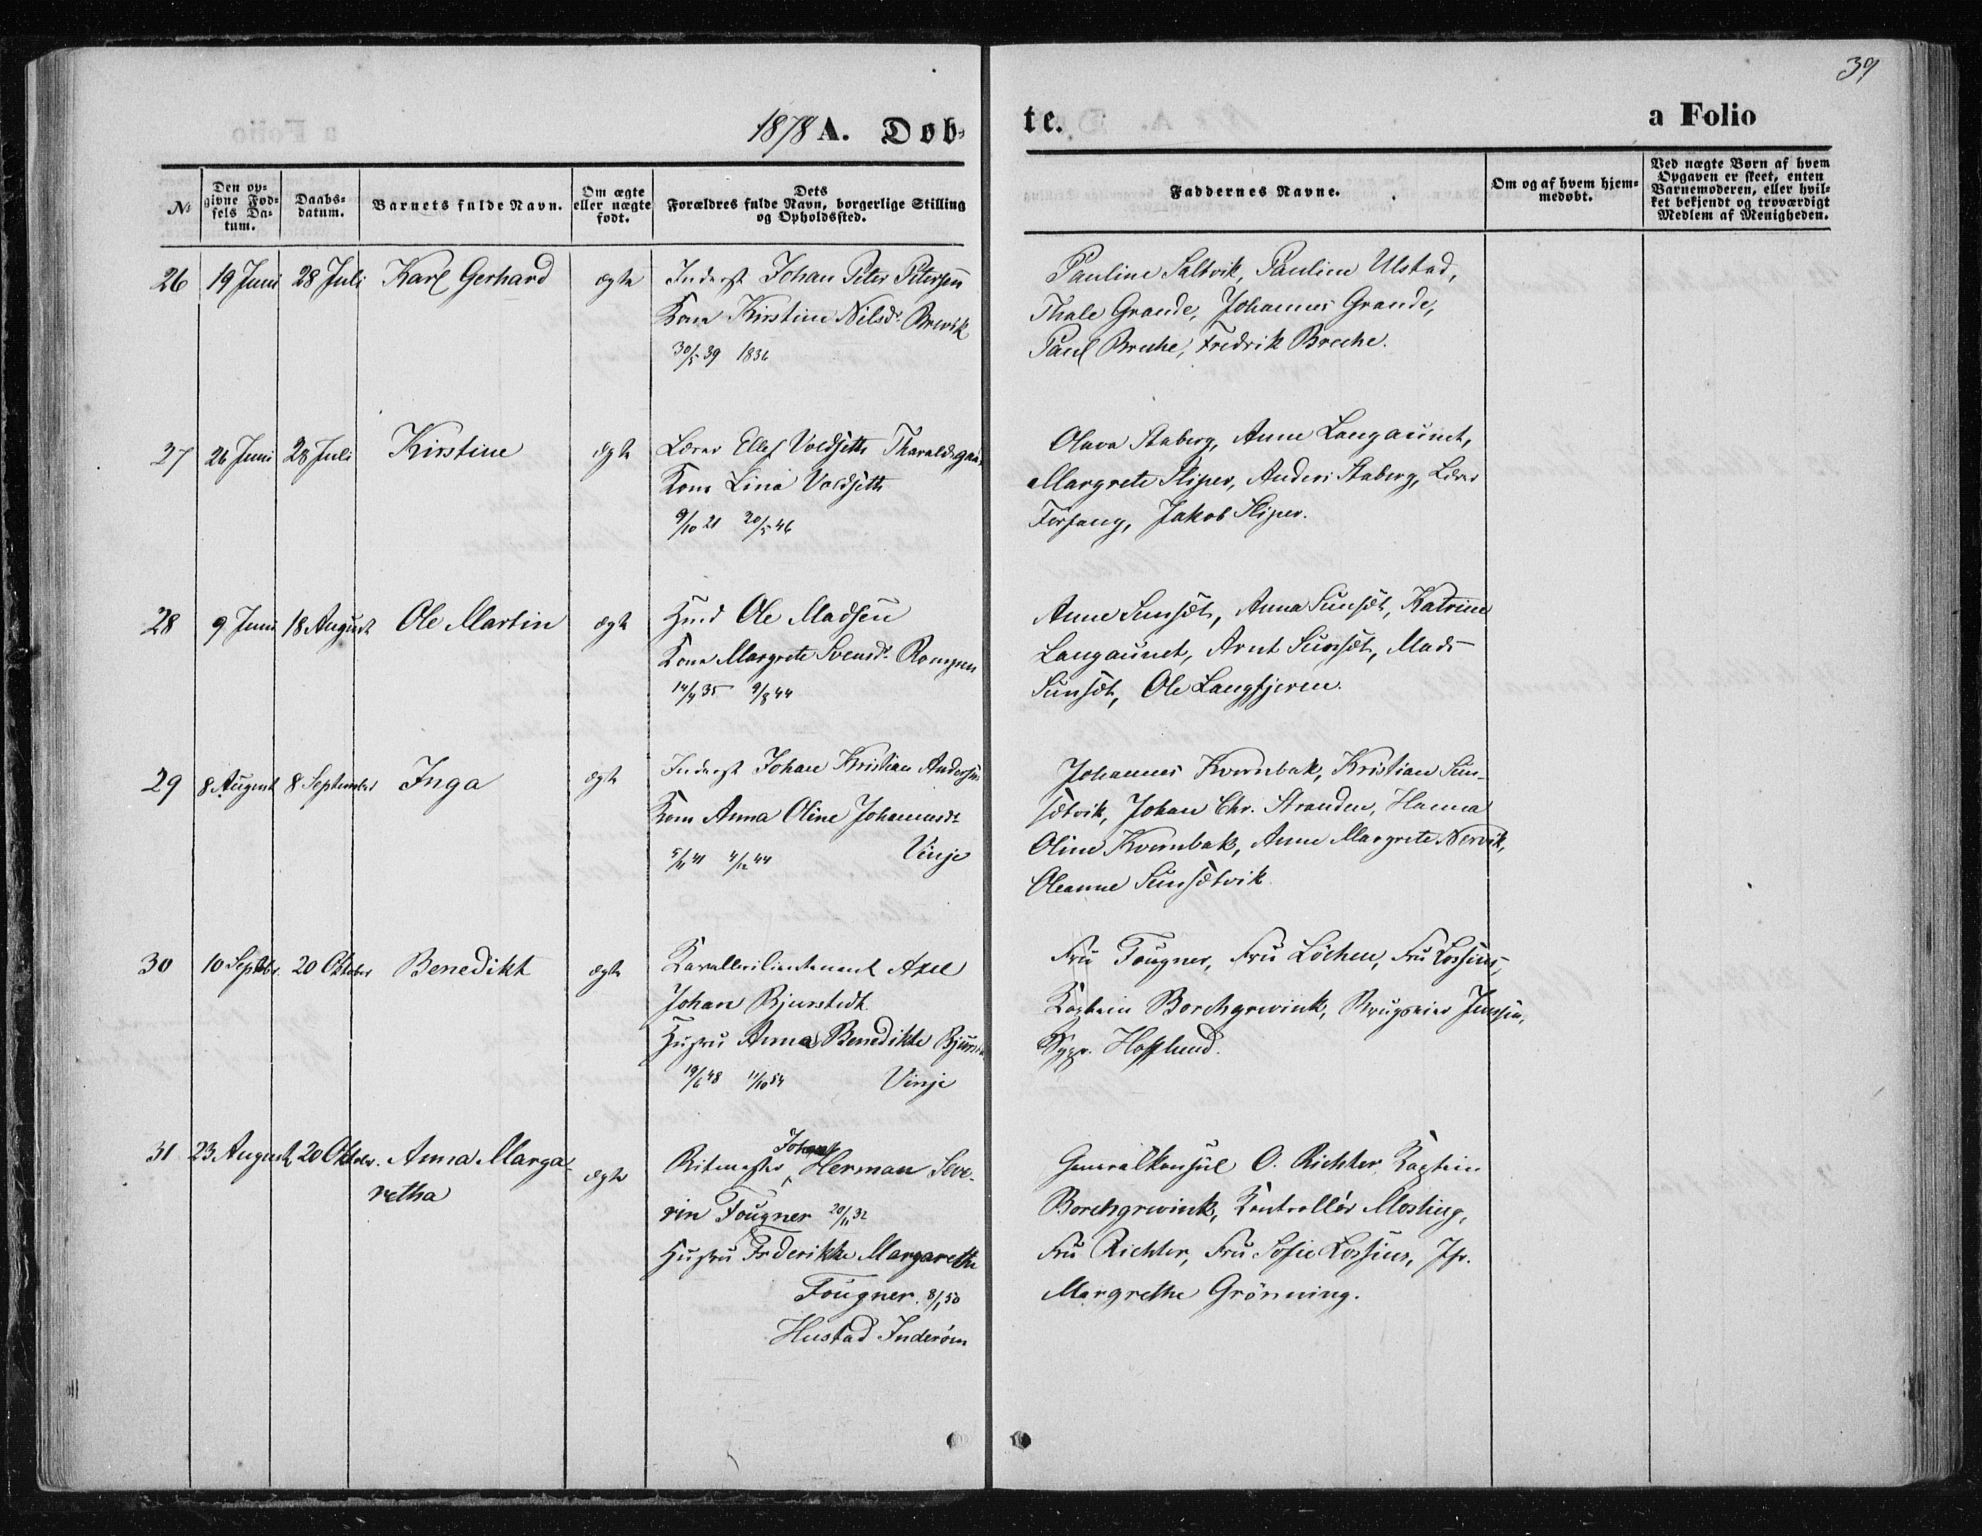 39
1878 A. Døb-
te.
a Folio
№
Den op-
givne Fød-
sels Da-
tum.
Daabs-
datum.
Barnets fulde Navn.
Om ægte
eller uægte
født.
Dets
Forældres fulde Navn, borgerlige Stilling
og Opholdssted.
Faddernes Navne.
Om og af hvem hjem-
medøbt.
Ved uægte Børn af hvem
Opgaven er skeet, enten
Barnemoderen, eller hvil-
ket bekjendt og troværdigt
Medlem af Menigheden.
26 19 Juni 28 Juli Karl Gerhard ægte Inderst Johan Peter Petersen
Kone Kirstine Nilsdr. Brevik
30/5 39 1836
Pauline Saltvik, Pauline Ulstad,
Thale Grande, Johannes Grande,
Paul Breche, Fredrik Breche.
27 26 Juni 28 Juli Kirstine ægte Lærer Ellef Voldseth Tharaldsgaa
Kone Lina Voldseth
9/10 21 20/5 46
Olava Staberg, Anne Langaunet,
Margrete Sliper, Anders Staberg, Lærer
Forfang, Jakob Sliper.
28 9 Juni 18 August Ole Martin ægte Hmd Ole Madsen
Kone Margrete Svensdr. Rompen
14/4 35 9/8 44
Anne Sunset, Anna Sunset, Katrine
Langaunet, Arnt Sunset, Mads
Sunset, Ole Langfjeren.
29 8 August 8 September Inga ægte Inderst Johan Kristian Andersen
Kone Anna Oline Johannesdr.
5/11 41 4/12 44 Vinje
Johannes Kvernbak, Kristian Sun-
setvik, Johan Chr. Stranden, Hanna
Oline Kvernbak, Anne Margrete Nervik,
Oleanne Sunsetvik.
30 10 Septbr. 20 Oktober Benedikt ægte Kavallerilieutenant Axel
Johan Bjurstedt
Hustru Anna Benedikte Bjurst
19/6 48 11/10 54 Vinje
Fru Fougner, Fru Löchen, Fru Lossius,
Kaptein Borchgrevink, Brugseier Jenssen,
Sgpr. Hofflund.
31 23 August 20 Oktober. Anna Marga-
retha
ægte
Johan
Ritmester Herman Seve-
rin Fougner 20/11 32
Hustru Frederikke Margarethe
Fougner. 8/1 50
Hustad Inderøen
Generalkonsul O. Richter, Kaptein
Borchgrevink, Kontrollør Mosling,
Fru Richter, Fru Sofie Lossius, Jfr.
Margrethe Grönning.